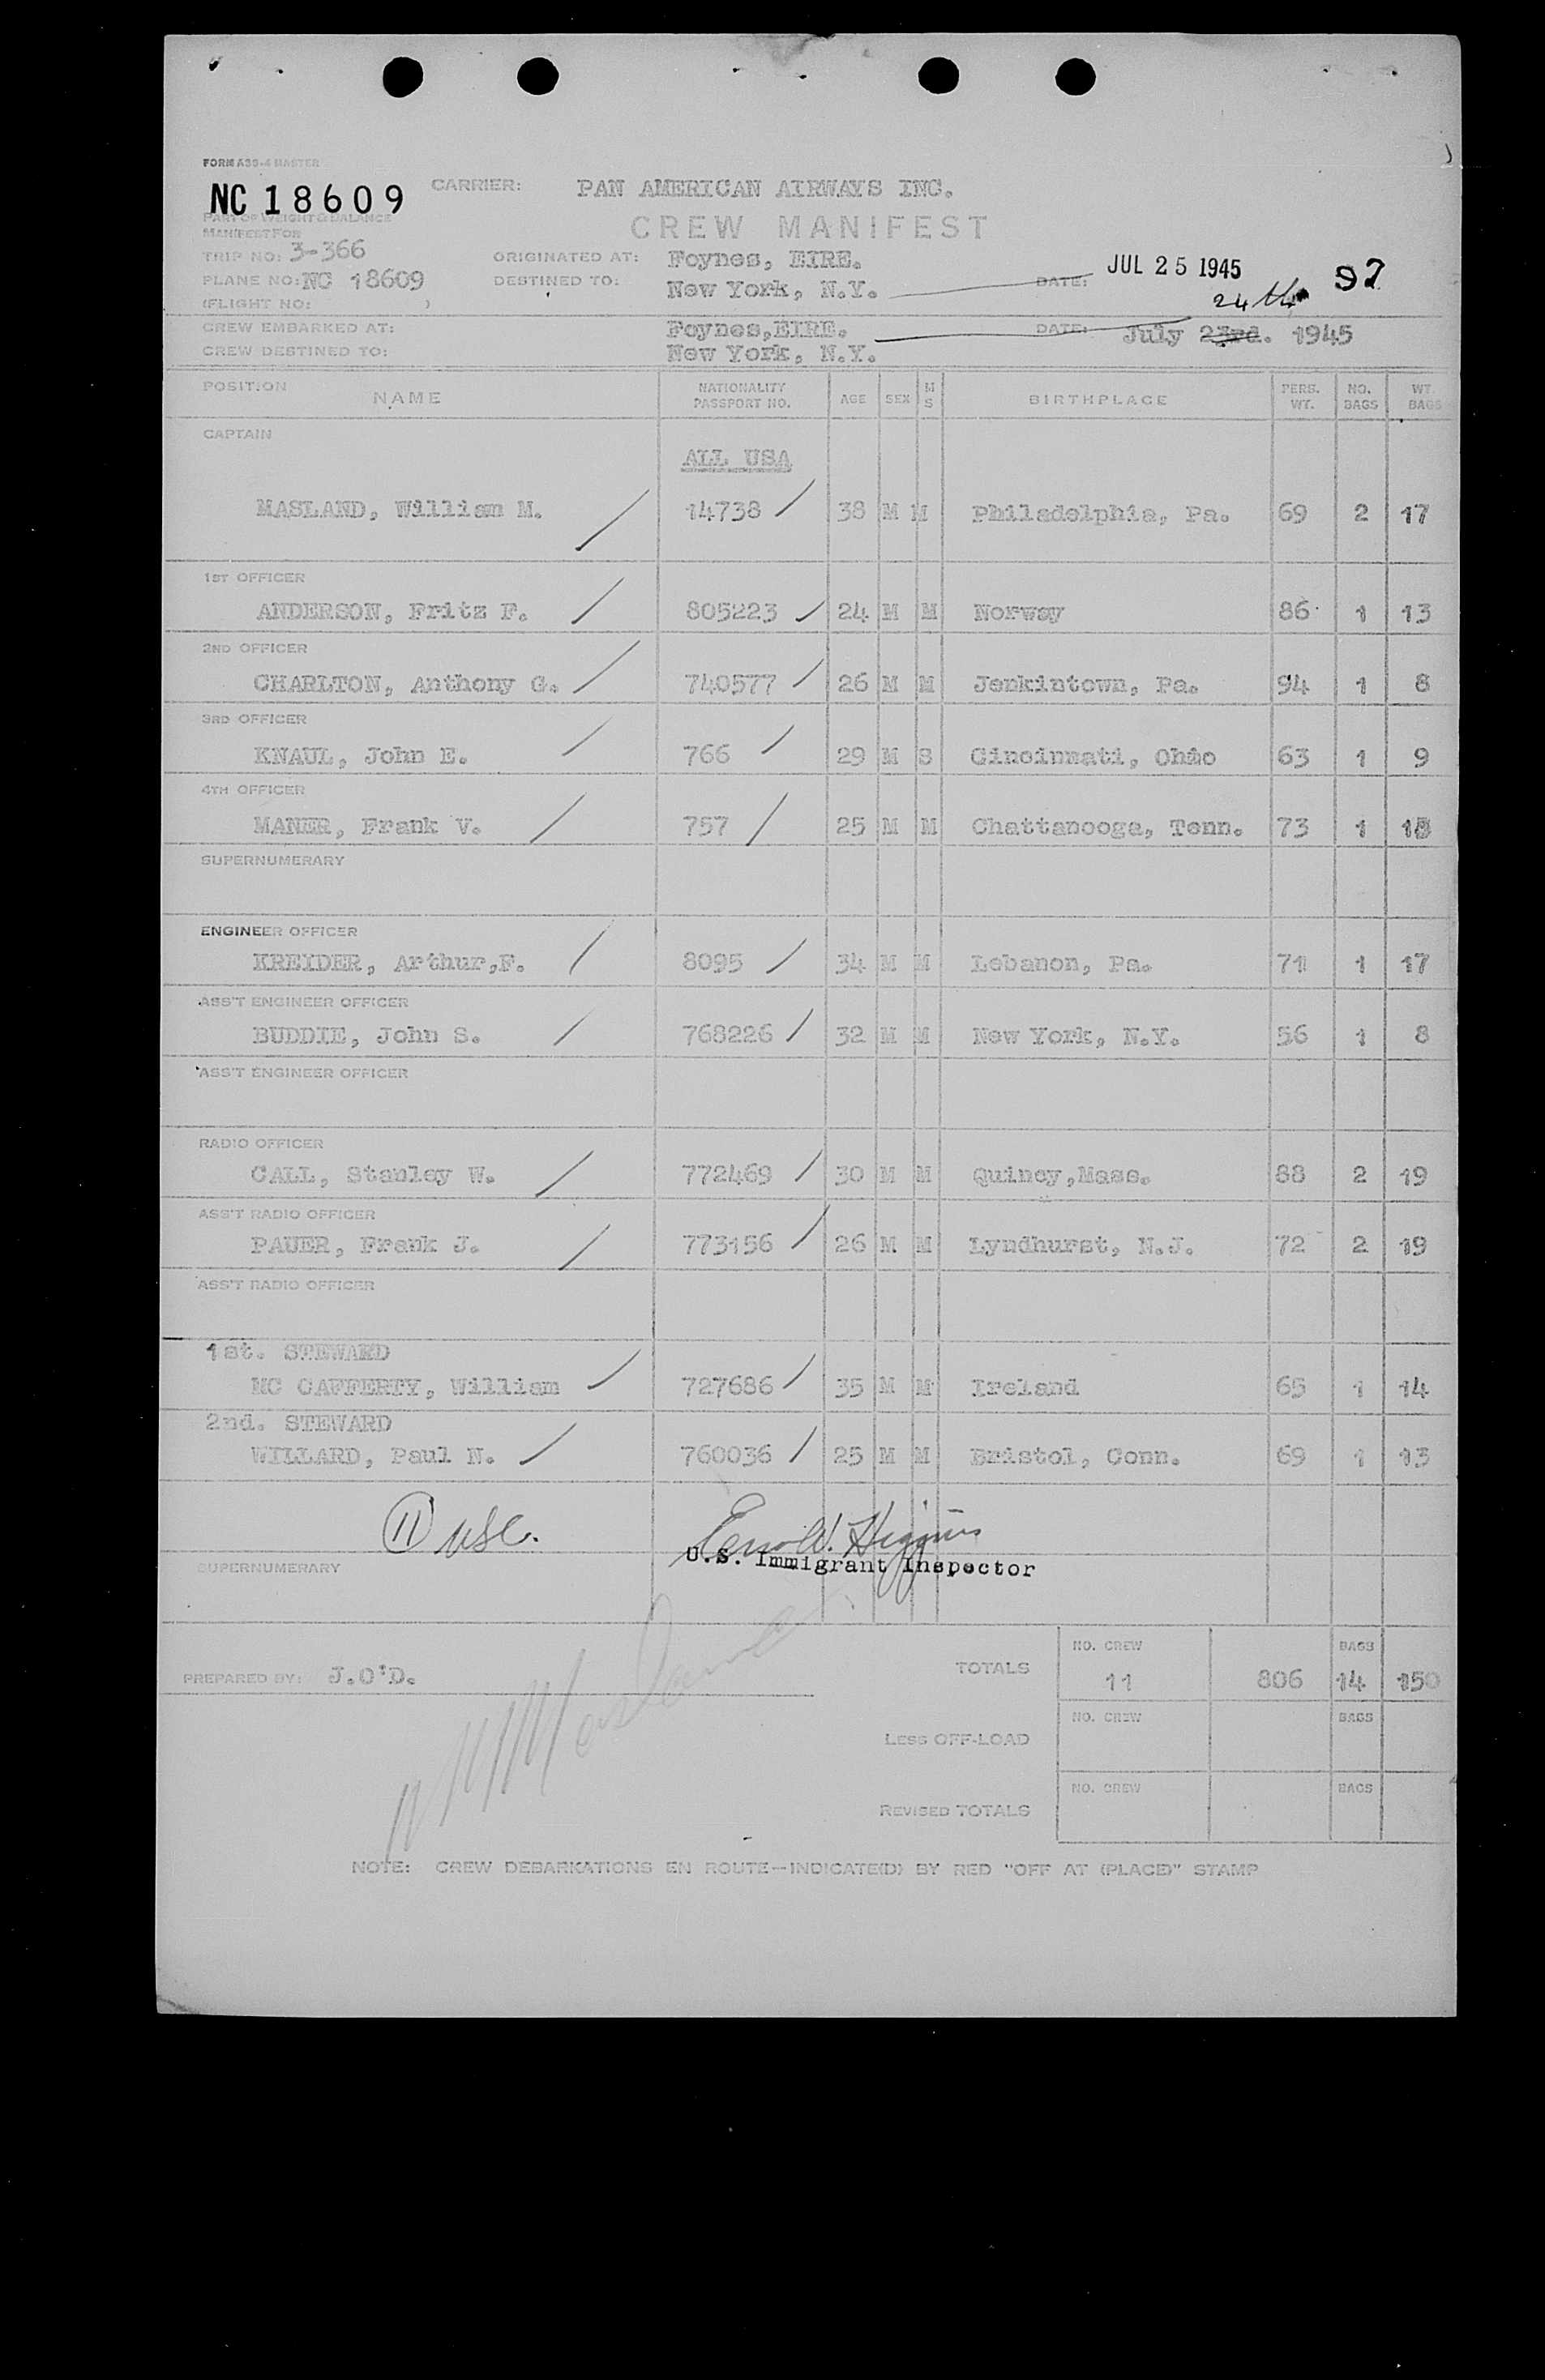 FORM A39-4 MASTER
NC 18609 CARRIER: PAN AMERICAN AIRWAYS INC.
PART OF WEIGHT & BALANCE
MANIFEST FOR
CREW MANIFEST
TRIP NO: 3-366 ORIGINATED AT: Foynes, EIRE.
JUL 25 1945 97
PLANE NO: NC 18609 DESTINED TO: New York, N.Y. DATE:
(FLIGHT NO: ) 24th
CREW EMBARKED AT: Foynes,EIRE. DATE: July 23rd. 1945
CREW DESTINED TO: New York, N.Y.
POSITION NAME NATIONALITY PASSPORT NO. AGE SEX M S BIRTHPLACE PERS. WT. NO. BAGS WT. BAGS
CAPTAIN
ALL USA
MASLAND, William M. 14738 38 M M Philadelphia, Pa. 69 2 17
1ST OFFICER
ANDERSON, Fritz F. 805223 24 M M Norway 86 1 13
2ND OFFICER
CHARLTON, Anthony G. 740577 26 M M Jenkintown, Pa. 94 1 8
3RD OFFICER
KNAUL, John E. 766 29 M S Cincinnati, Ohio 63 1 9
4TH OFFICER
MANER, Frank V. 757 25 M M Chattanooga, Tenn. 73 1
SUPERNUMERARY
ENGINEER OFFICER
KREIDER, Arthur,F. 8095 34 M M Lebanon, Pa. 71 1 17
ASS'T ENGINEER OFFICER
BUDDIE, John S. 768226 32 M M New York, N.Y. 56 1 8
ASS'T ENGINEER OFFICER
RADIO OFFICER
CALL, Stanley W. 772469 30 M M Quincy,Mass. 88 2 19
ASS'T RADIO OFFICER
PAUER, Frank J. 773156 26 M M Lyndhurst, N.J. 72 2 19
ASS'T RADIO OFFICER
1st. STEWARD
MC CAFFERTY, William 727686 35 M M Ireland 65 1 14
2nd. STEWARD
WILLARD, Paul N. 760036 25 M M Bristol, Conn. 69 1 13
11 USC. Higgins
U.S. Immigrant Inspector
SUPERNUMERARY
NO. CREW BAGS
PREPARED BY: J.O'D. TOTALS 11 806 14 150
WMMasland
NO. CREW BAGS
LESS OFF-LOAD
NO. CREW BAGS
REVISED TOTALS
NOTE: CREW DEBARKATIONS EN ROUTE—INDICATE(D) BY RED "OFF AT (PLACE)" STAMP